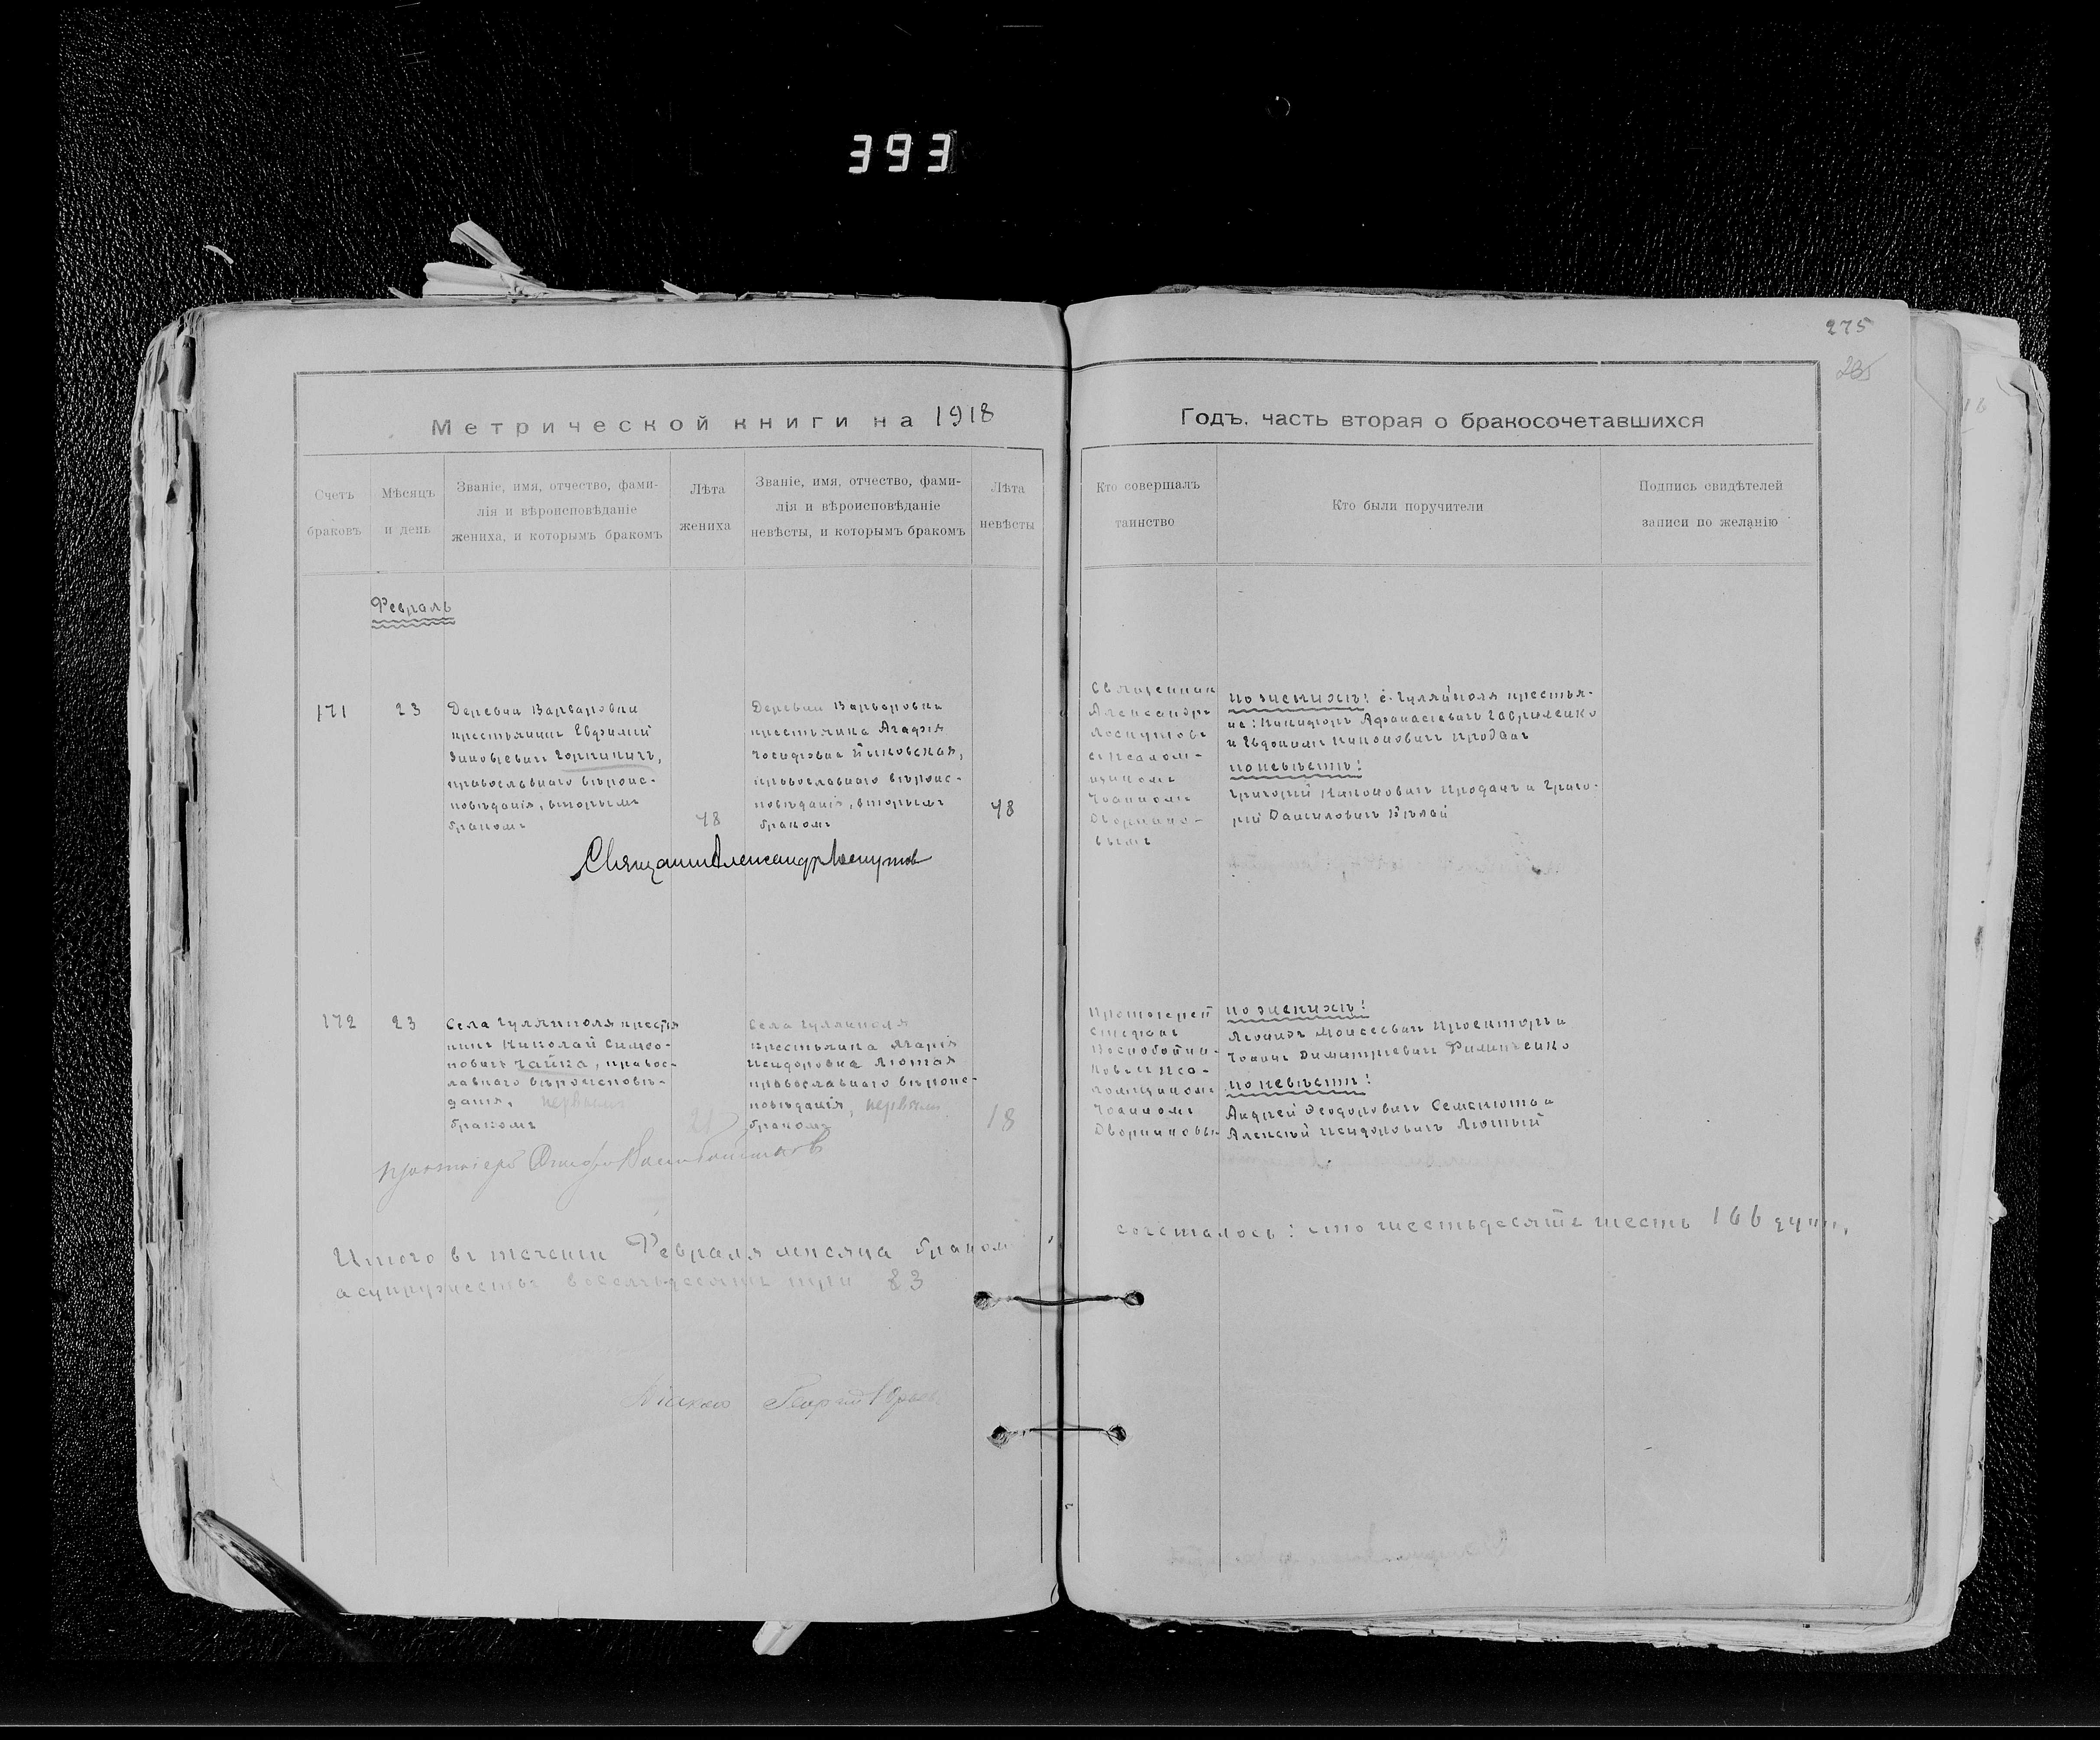 393
275
235
Метрической книги на 1918
Годъ, часть вторая о бракосочетавшихся
Счетъ
браковъ
Мѣсяцъ
и день
Званіе, имя, отчество, фами-
лія и вѣроисповѣданіе
жениха, и которымъ бракомъ
Лѣта
жениха
Званіе, имя, отчество, фами-
лія и вѣроисповѣданіе
невѣсты, и которымъ бракомъ
Лѣта
невѣсты
Кто совершалъ
таинство
Кто были поручители
Подпись свидѣтелей
записи по желанію
Февраль
171
23
Деревни Варваровки
крестьянинъ Евфимий
Зиновіевичъ
православнаго вѣроис-
повѣданія, вторымъ
бракомъ
48
Деревни Варваровки
крестьянка Агафія
Іосифовна
православнаго вѣроис-
повѣданія, вторымъ
бракомъ
48
Священник
Александръ
Лоскутовъ
съ псалом-
щикомъ
Іоанномъ
Дворнико-
вымъ
по женихѣ: с. Гуляйполя крестья-
не: Никифоръ Афанасіевичъ Гавриленко
и Евдокимъ Никоновичъ Продан
по невѣстѣ:
Григорій Никоновичъ Проданъ и Григо-
рій Данииловичъ Бѣлай
Священник Александр Лоскутов
172
23
Села Гуляйполя крестья
нинъ Николай Симео-
новичъ Чайка, правос-
лавнаго вѣроисповѣ-
данія, первымъ
бракомъ
21
Села Гуляйполя
крестьянка Марія
Исидоровна Лютая
православнаго вѣроис-
повѣданія, первымъ
бракомъ
18
Протоіерей
Стефанъ
Воскобойни-
ковъ и пса-
ломщикомъ
Іоанномъ
Дворниковы
по женихѣ:
Моисеевичъ и
Іоаннъ Димитріевичъ
по невѣстѣ:
Андрей Феодоровичъ Семенюта и
Алексѣй Исидоровичъ Лютый
Протоіерей Стефан Воскобойников
Итого въ теченіи Февраля мѣсяца браком
сочеталось: сто шестьдесятъ шесть 166 душъ,
а супружествъ восемьдесятъ три 83